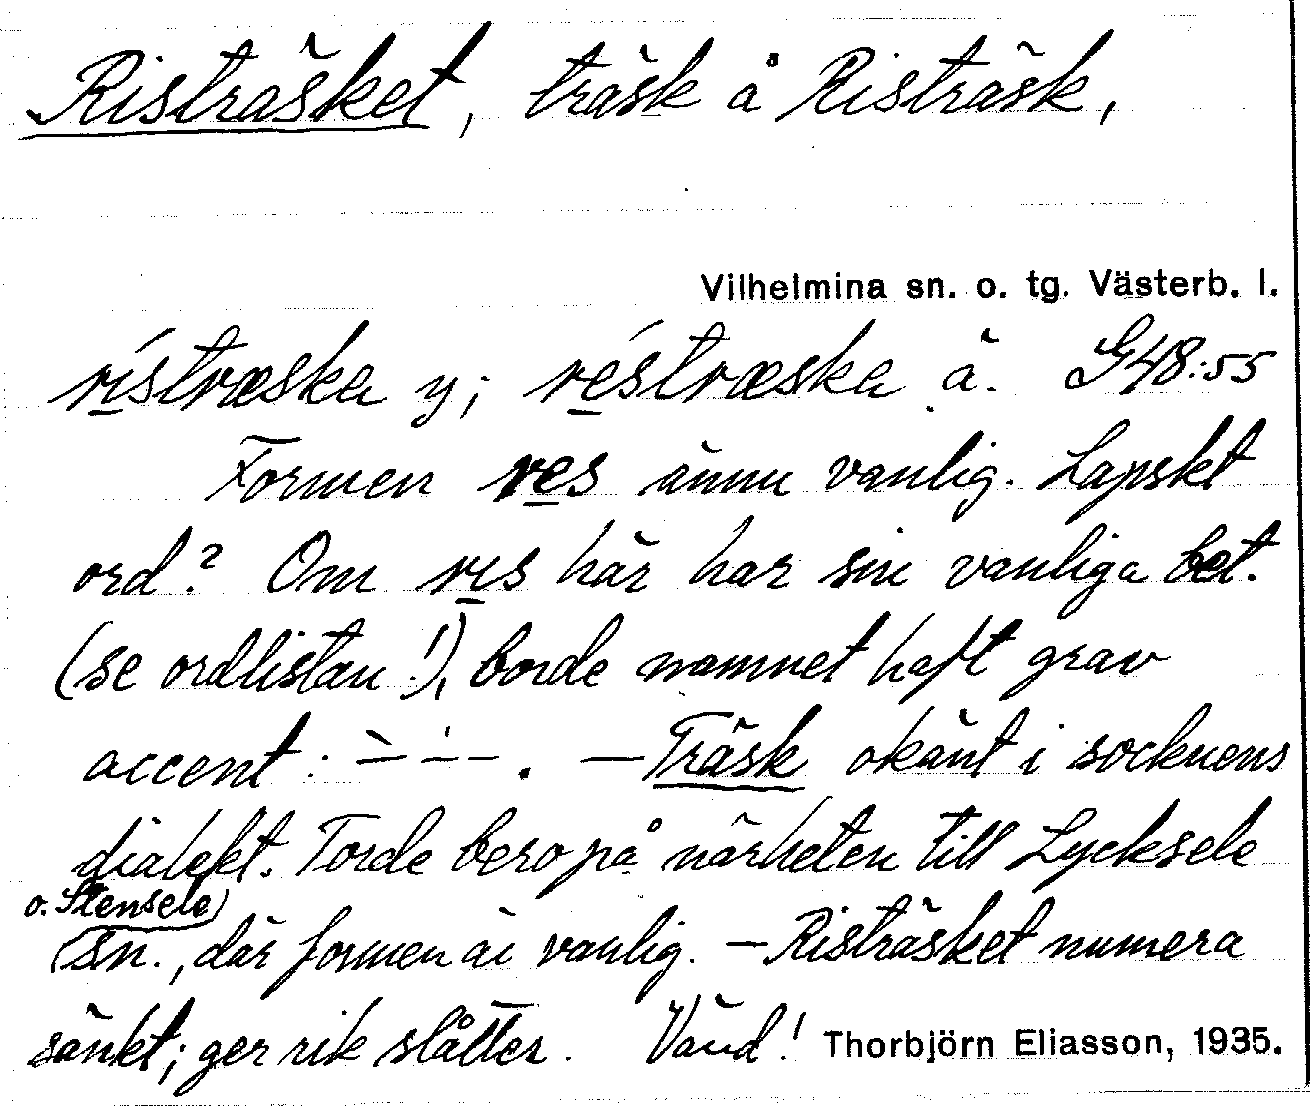 Risträsket, träsk å Risträsk,
Vilhelmina sn. o. tg. Västerb. l.
rístræska y; réstræska ä. G48:55
Formen res ännu vanlig. Lapskt
ord? Om ris här har sin vanliga bet.
(se ordlistan!), borde namnet haft grav
accent: – – –. – Träsk okänt i socknens
dialekt. Torde bero på närheten till Lycksele
o. Stensele
sn., där formen är vanlig. – Risträsket numera
sänkt; ger rik slåtter. Vänd! Thorbjörn Eliasson, 1935.